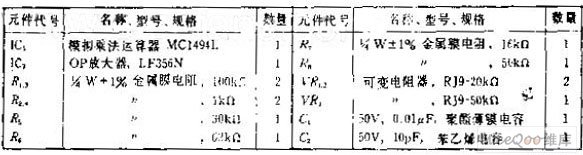 元件代号 名称、型号、规格 数量 元件代号 名称、型号、规格 数量
IC₁ 模拟乘法运算器 MC1494L 1 R₇ ¼W±1%金属膜电阻, 16kΩ 1
IC₂ OP放大器, LF356N 1 R₈ 〃 , 50kΩ 1
R₁,₃ ¼W±1%金属膜电阻, 100kΩ 2 VR₁,₂ 可变电阻器, RJ9-20kΩ 2
R₂,₄ 〃 , 1kΩ 2 VR₃ RJ9-50kΩ 1
R₅ 〃 , 30kΩ 1 C₁ 50V, 0.01μF, 聚酯薄膜电容 1
R₆ 〃 , 62kΩ 1 C₂ 50V, 10pF, 苯乙烯电容 1
维库